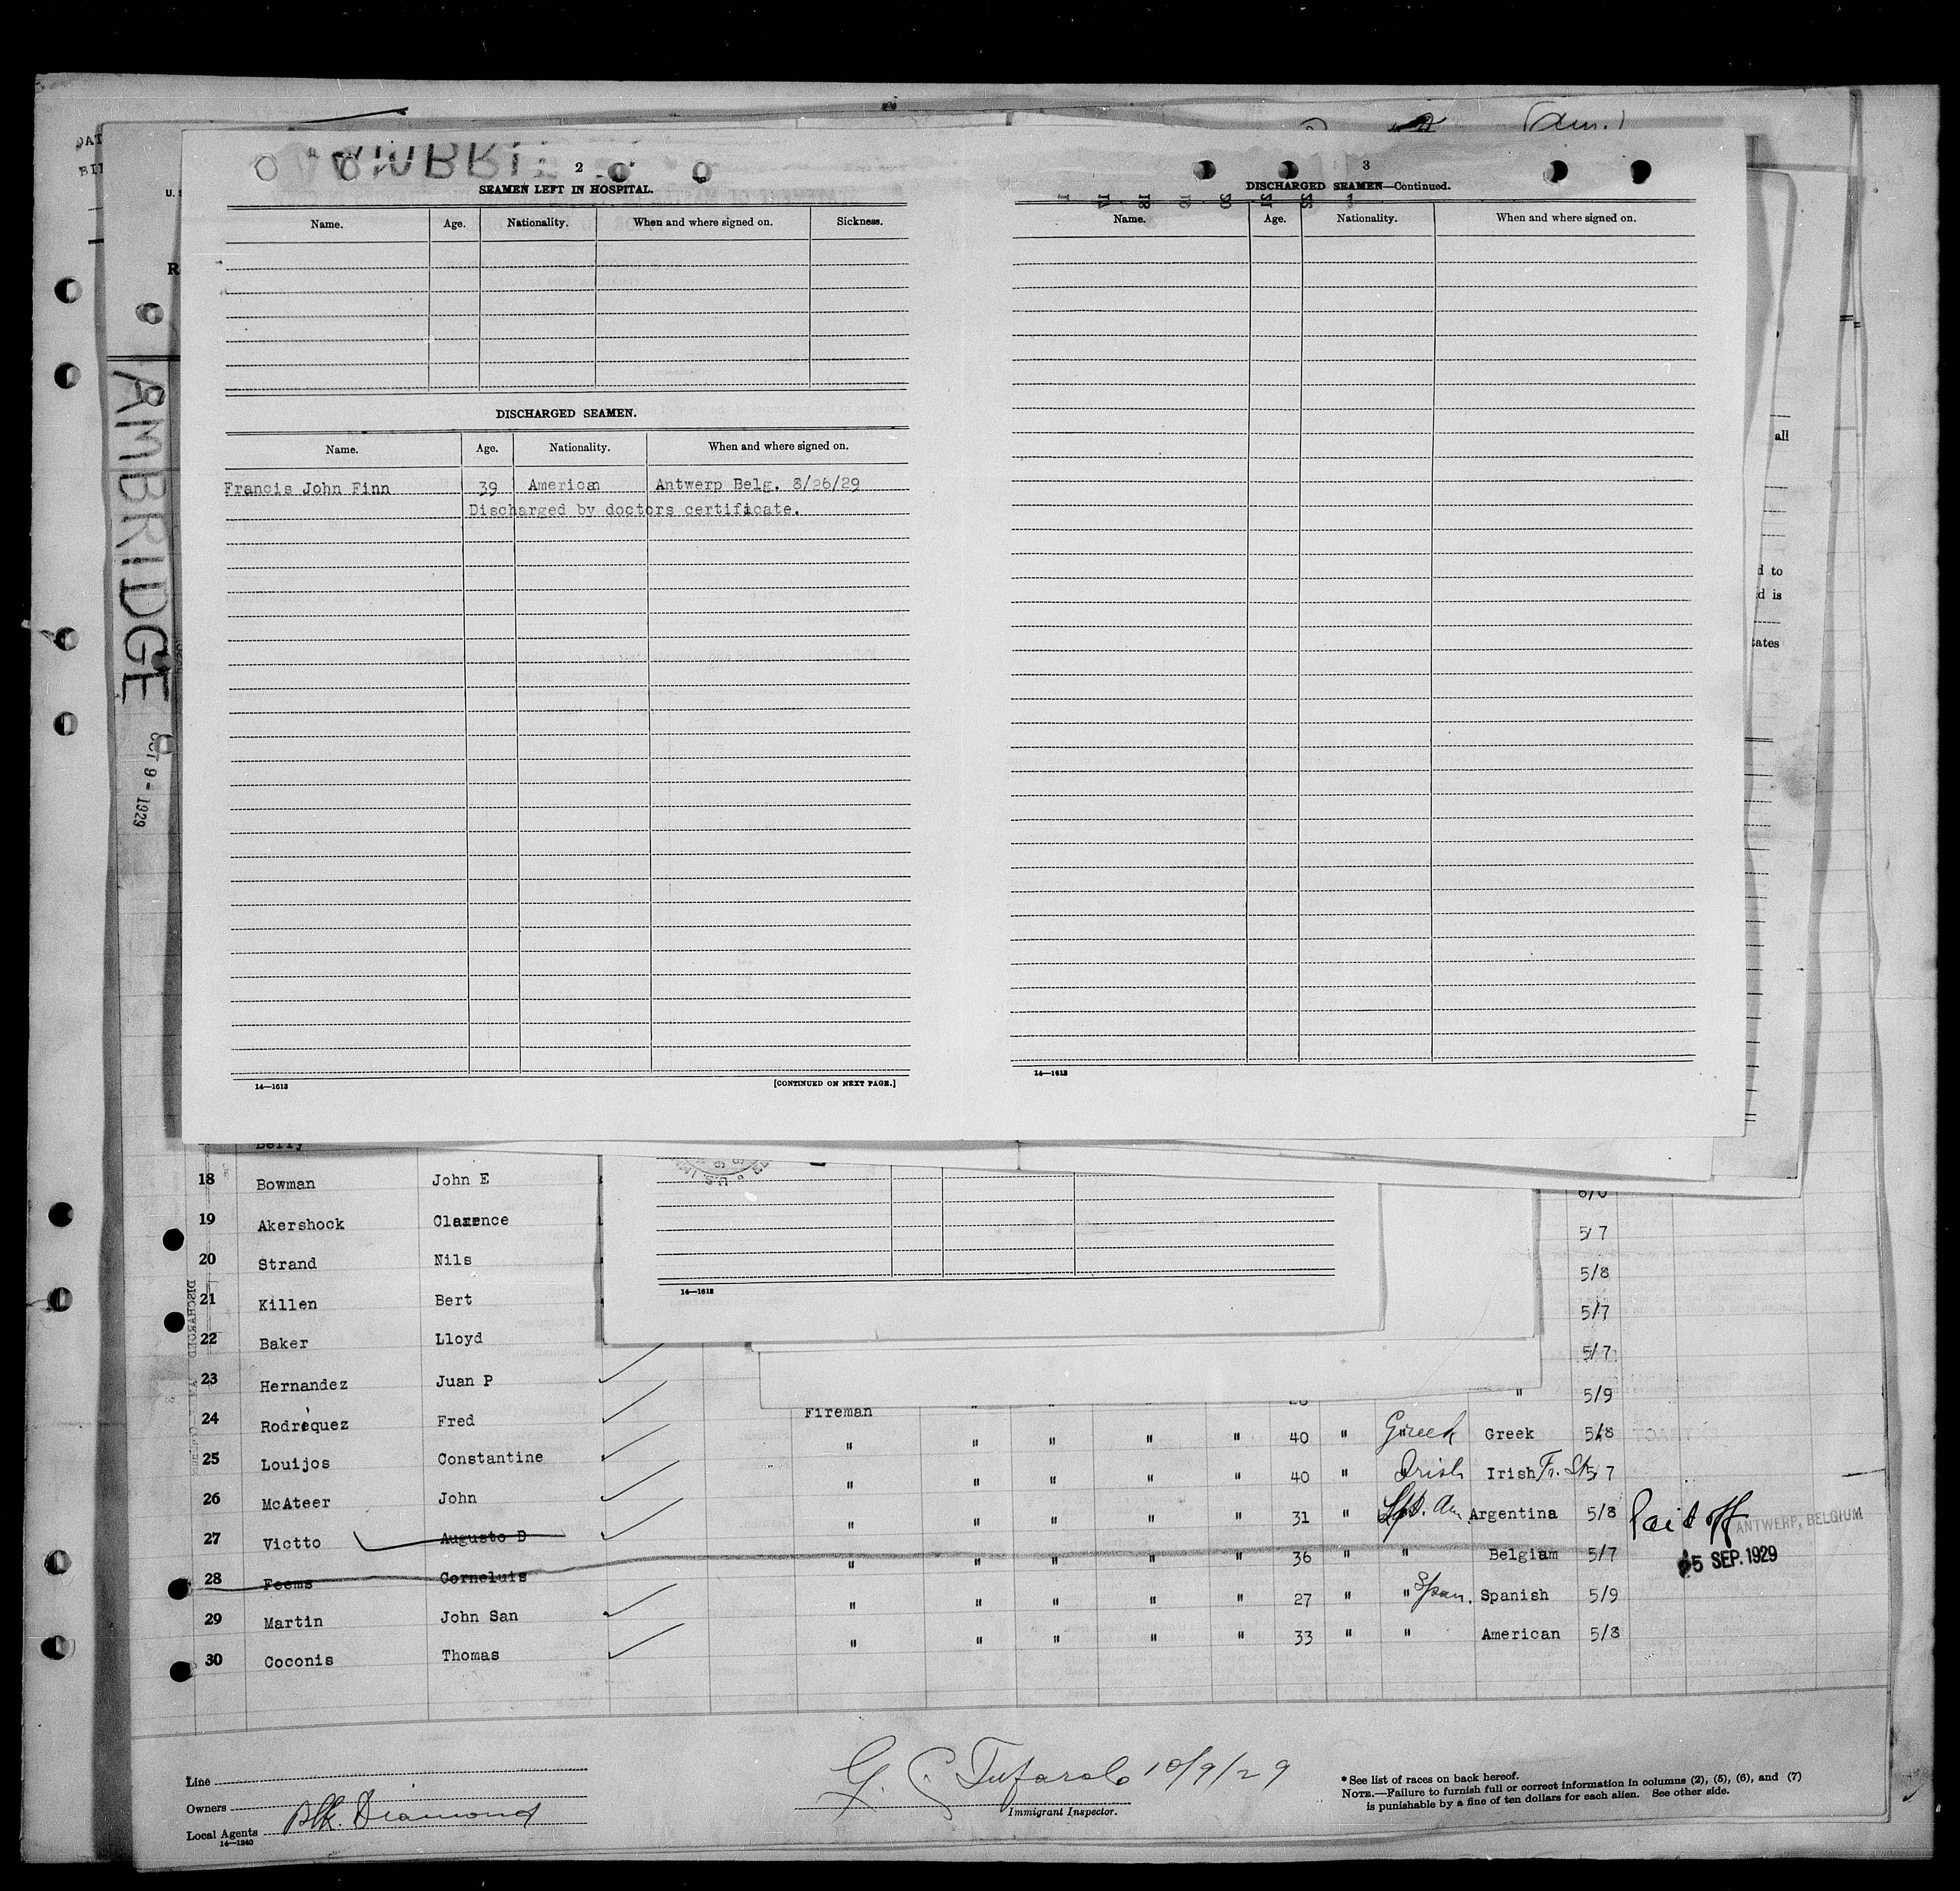 (Am.)
DAT
BII
U. S
R
AMBRIDGE
OCT 9 - 1929
AMBRI
2
SEAMEN LEFT IN HOSPITAL.
Name. Age. Nationality. When and where signed on. Sickness.
DISCHARGED SEAMEN.
Name. Age. Nationality. When and where signed on.
Francis John Finn 39 American Antwerp Belg. 8/26/29
Discharged by doctors certificate.
14—1613 [CONTINUED ON NEXT PAGE.]
3
DISCHARGED SEAMEN—Continued.
Name. Age. Nationality. When and where signed on.
14—1613
all
d to
d is
tates
Berry
18 Bowman John E
19 Akershock Clarence 5/7
20 Strand Nils 5/8
21 Killen Bert 5/7
22 Baker Lloyd 5/7
23 Hernandez Juan P " 5/9
24 Rodrequez Fred Fireman " " " " 40 " Greek Greek 5/8
25 Louijos Constantine " " " " " 40 " Irish Irish Fr. St 5/7
26 McAteer John " " " " " 31 " Am. Argentina 5/8 Paid off ANTWERP, BELGIUM
27 Victto Augusto D " " " " " 36 " " Belgiam 5/7 5 SEP. 1929
28 Feems Corneluis " " " " " 27 " " Span. Spanish 5/9
29 Martin John San " " " " " 33 " " American 5/8
30 Coconis Thomas
14—1613
DISCHARGED
Line
Owners
Local Agents Blk. Diamond
14—1240
G. C. Tufarolo 10/9/29
Immigrant Inspector.
* See list of races on back hereof.
NOTE.—Failure to furnish full or correct information in columns (2), (5), (6), and (7)
is punishable by a fine of ten dollars for each alien. See other side.